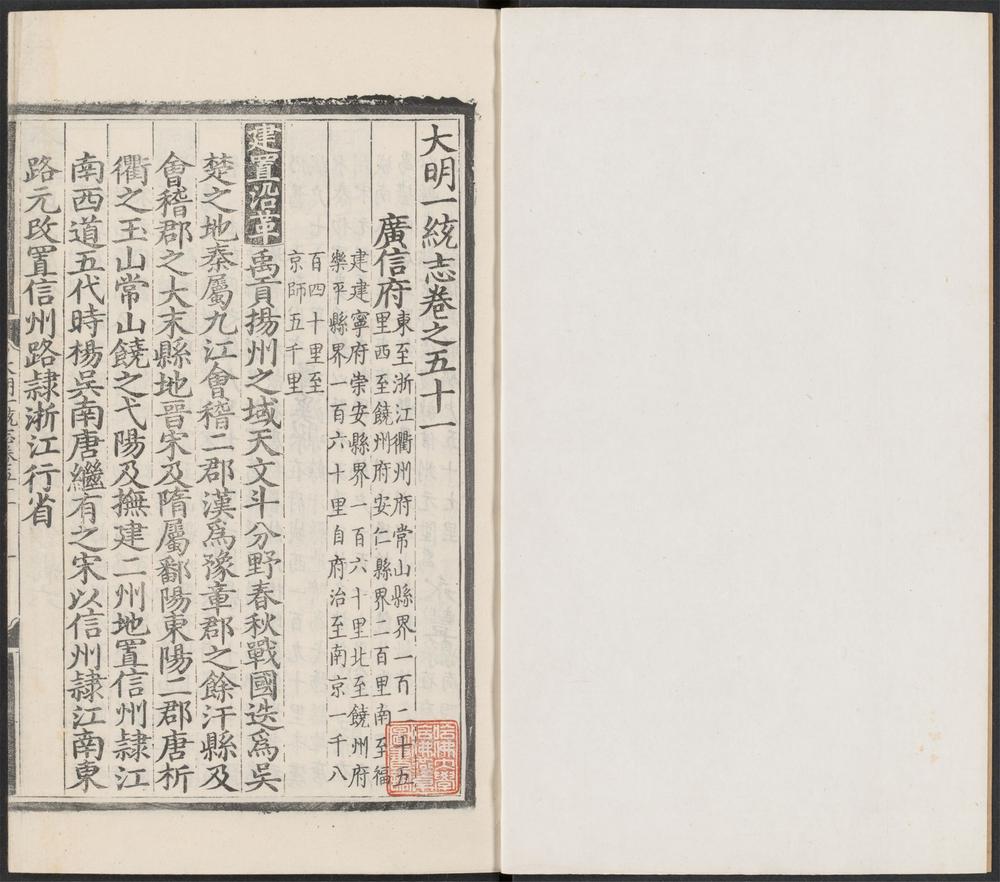 大明一統志卷之五十一
廣信府
東至浙江衢州府常山縣界一百二十五
里西至饒州府安仁縣界二百里南至福
建建寧府崇安縣界一百六十里北至饒州府
樂平縣界一百六十里自府治至南京一千八
百四十里至
京師五千里
建置沿革禹貢揚州之域天文斗分野春秋戰國迭爲吳
楚之地秦屬九江會稽二郡漢爲豫章郡之餘汗縣及
會稽郡之大末縣地晉宋及隋屬鄱陽東陽二郡唐析
衢之玉山常山饒之弋陽及撫建二州地置信州隷江
南西道五代時楊吳南唐繼有之宋以信州隷江南東
路元改置信州路隷浙江行省